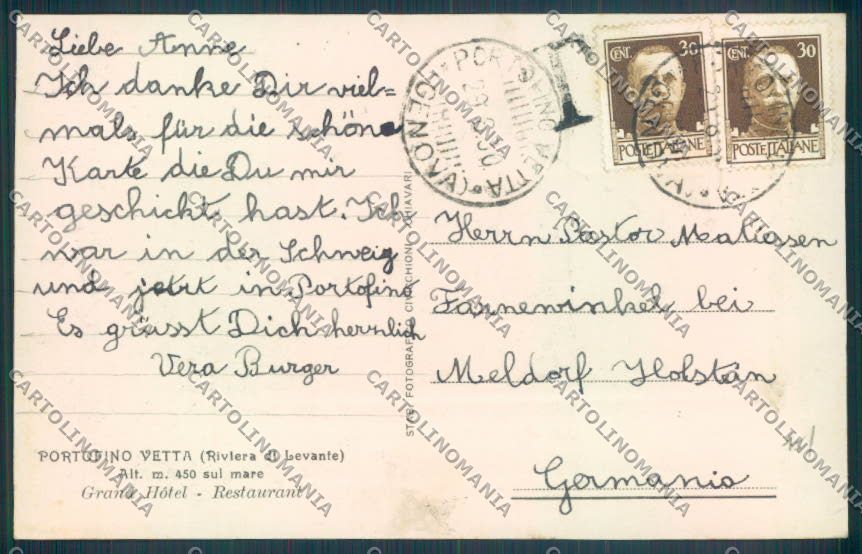 Liebe Anne
Ich danke Dir viel=
mals für die schöne
Karte die Du mir
geschickt hast. Ich
war in der Schweiz
und jetzt in Portofino
Es grüsst Dich herzlich
Vera Burger
PORTOFINO VETTA (Riviera di Levante)
Alt. m. 450 sul mare
Grand Hôtel - Restaurant
STAB. FOTOGRAFICO CICCHIONI CHIAVARI
PORTOFINO VETTA
(GENOVA)
T
CENT. 30
POSTE ITALIANE
CENT. 30
POSTE ITALIANE
Herrn Pastor Matiessen
Farnewinkel bei
Meldorf Holstein
Germania
CARTOLINOMANIA